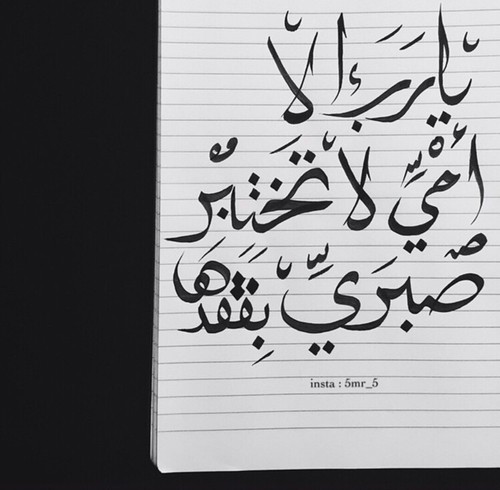 يا رب إلا
أمي لا تختبر
صبري بفقدها
insta : 5mr_5